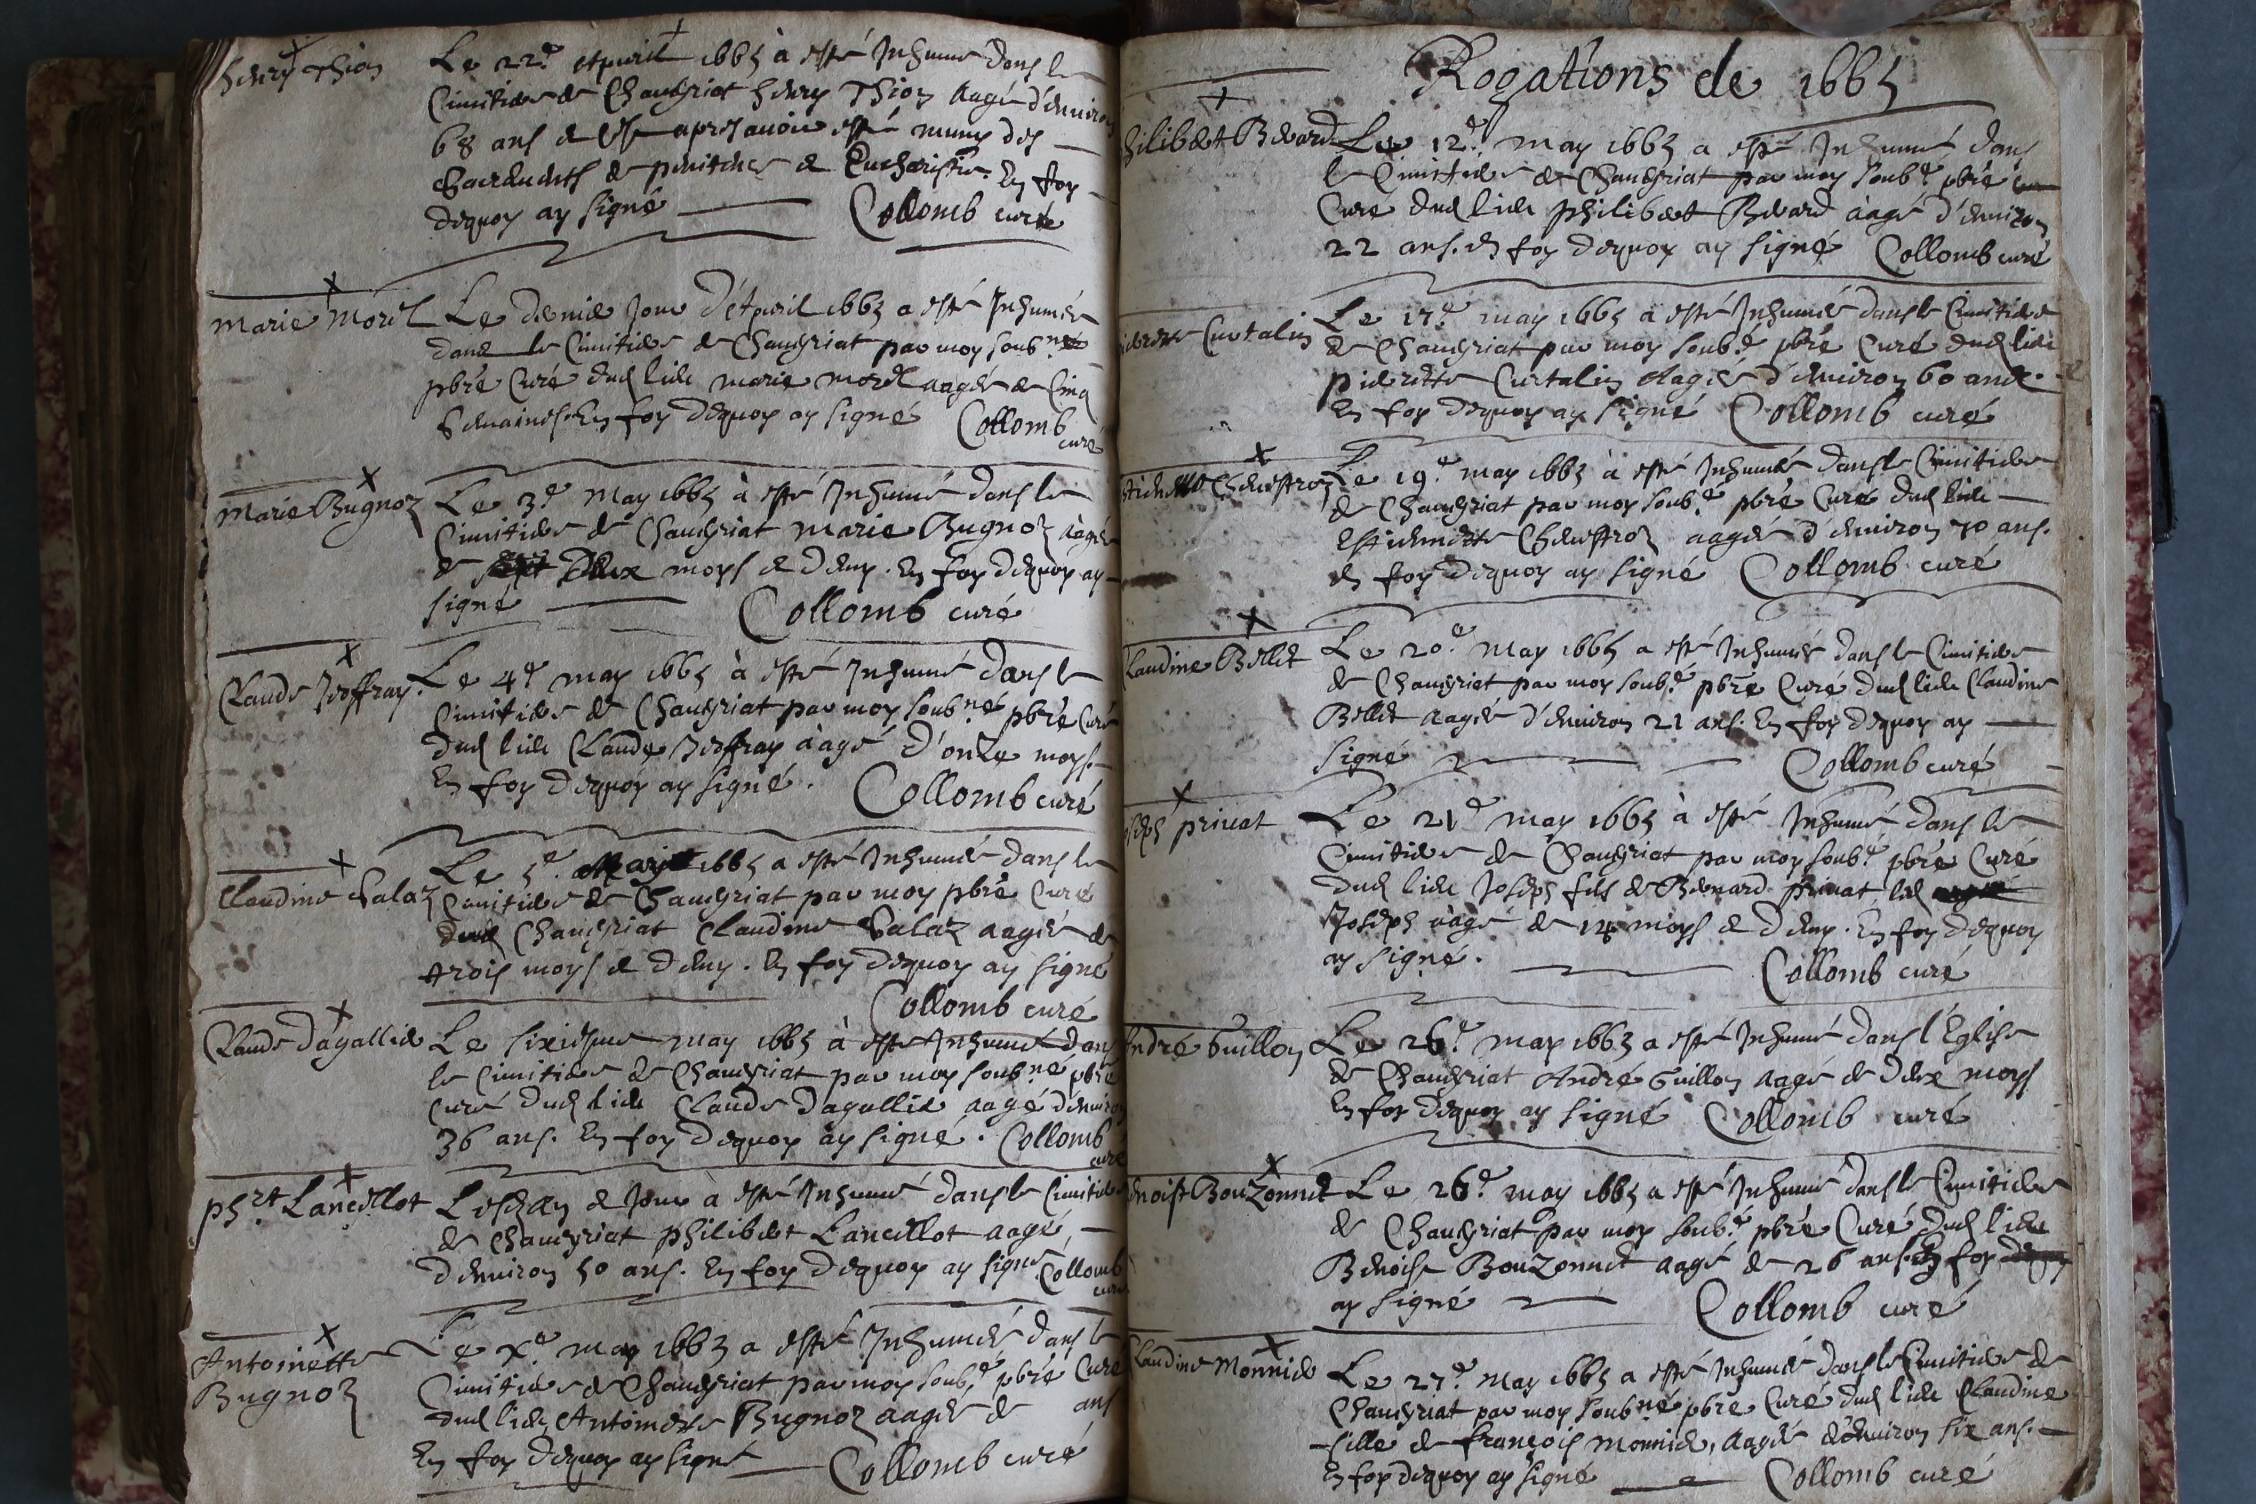 Henry Thion
Le 22e. Apuril 1665 à esté Inhumé dans le
Cimitiere de Chaveyriat Henry Thion Aagé d'environ
68 ans et est apres avoir esté muny des
Sacrements de penitence et Eucharistie. En foy
dequoy ay signé Collomb curé
Marie Morel
Le dernier Jour d'Apuril 1665 a esté Inhumée
dans le Cimitiere de Chaveyriat par moy soubné
pbre Curé dud lieu marie morel aagée de Cinq
Semaines. En foy dequoy ay signé Collomb
curé
Marie Bugnoz
Le 3e May 1665 à esté Inhumé dans le
Cimitiere de Chaveyriat Marie Bugnoz aagée
de Deux moys et demy. En foy dequoy ay
signé Collomb curé
Claude Jeoffray.
Le 4e may 1665 à esté Inhumé dans le
Cimitiere de Chaveyriat par moy soubné pbre Curé
dud lieu Claude Jeoffray àagé d'onze moys.
En foy dequoy ay signé. Collomb curé
Claudine Salaz
Le 5e. May 1665 a esté Inhumée dans le
Cimitiere de Chaveyriat par moy pbre Curé
dud Chaveyriat Claudine Salaz aagée de
trois moys et demy. En foy dequoy ay signé
Collomb curé
Claude Dagallier
Le sixiesme may 1665 à esté Inhumé dans
le Cimitiere de Chaveyriat par moy soubné pbre
Curé dud lieu Claude Dagallier aagé denviron
36 ans. En foy dequoy ay signé. Collomb
curé
phrt Lancillot
Les an et Jour à esté Inhumé dans le Cimitiere
de Chaveyriat philibert Lancillot aagé
denviron 50 ans. En foy dequoy ay signé Collomb
curé
Antoinette
Bugnoz
Le Xe may 1665 a esté Inhumée dans le
Cimitiere de Chaveyriat par moy soubé pbre Curé
dud lieu Antoinette Bugnoz aagée de ans
En foy dequoy ay signé Collomb curé
Rogations de 1665
hilibert Bevard
Le 12e. may 1665 a esté Inhumé dans
le Cimitiere de Chaveyriat par moy soubé pbre
Curé dud lieu philibert Bevard àagé d'environ
22 ans. En foy dequoy ay signé Collomb curé
ierette Curtalin
Le 17e may 1665 a esté Inhumée dans le Cimitiere
de Chaveyriat par moy soubé pbre Curé dud lieu
pierette Curtalin Aagée d'environ 60 ans.
En foy dequoy ay signé Collomb curé
Le 19e may 1665 à esté Inhumée dans le Cimitiere
de Chaveyriat par moy soubé pbre Curé dud lieu
Estiennette Cheuffroz aagée d'environ 70 ans.
En foy dequoy ay signé Collomb curé
Claudine Bellet
Le 20e May 1665 a esté Inhumée dans le Cimitiere
de Chaveyriat par moy soubé pbre Curé dud lieu Claudine
Bellet aagée d'environ 21 ans. En foy dequoy ay
signé Collomb curé
oseph privat
Le 21e may 1665 à esté Inhumé dans le
Cimitiere de Chaveyriat par moy soubé pbre Curé
dud lieu Joseph fils de Bernard privat led
Joseph aagé de 14 moys et demy. En foy dequoy
ay signé. Collomb curé
André Guillon
Le 26e may 1665 a esté Inhumé dans l'Eglise
de Chaveyriat André Guillon aagé de Deux moys
En foy dequoy ay signé Collomb curé
enoist Bouzonnet
Le 26e may 1665 a esté Inhumé dans le Cimitiere
de Chaveyriat par moy soubé pbre Curé dud lieu
Benoist Bouzonnet aagé de 26 ans. En foy dequoy
ay signé Collomb curé
Claudine Monnier
Le 27e May 1665 a esté Inhumée dans le Cimitiere de
Chaveyriat par moy soubné pbre Curé dud lieu Claudine
fille de françois monnier, aagée d'environ six ans.
En foy dequoy ay signé Collomb curé